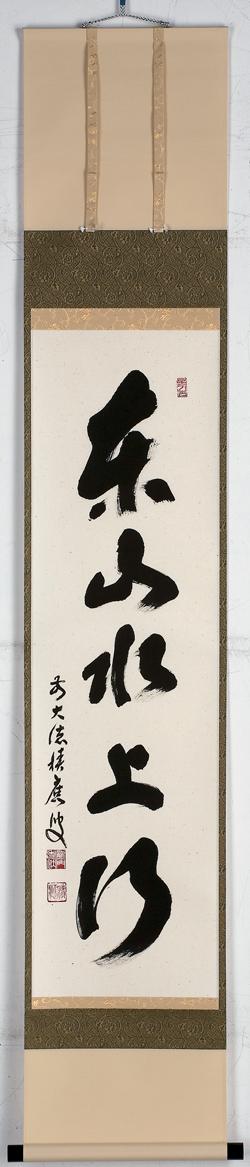 東山水上行
前大徳積應叟